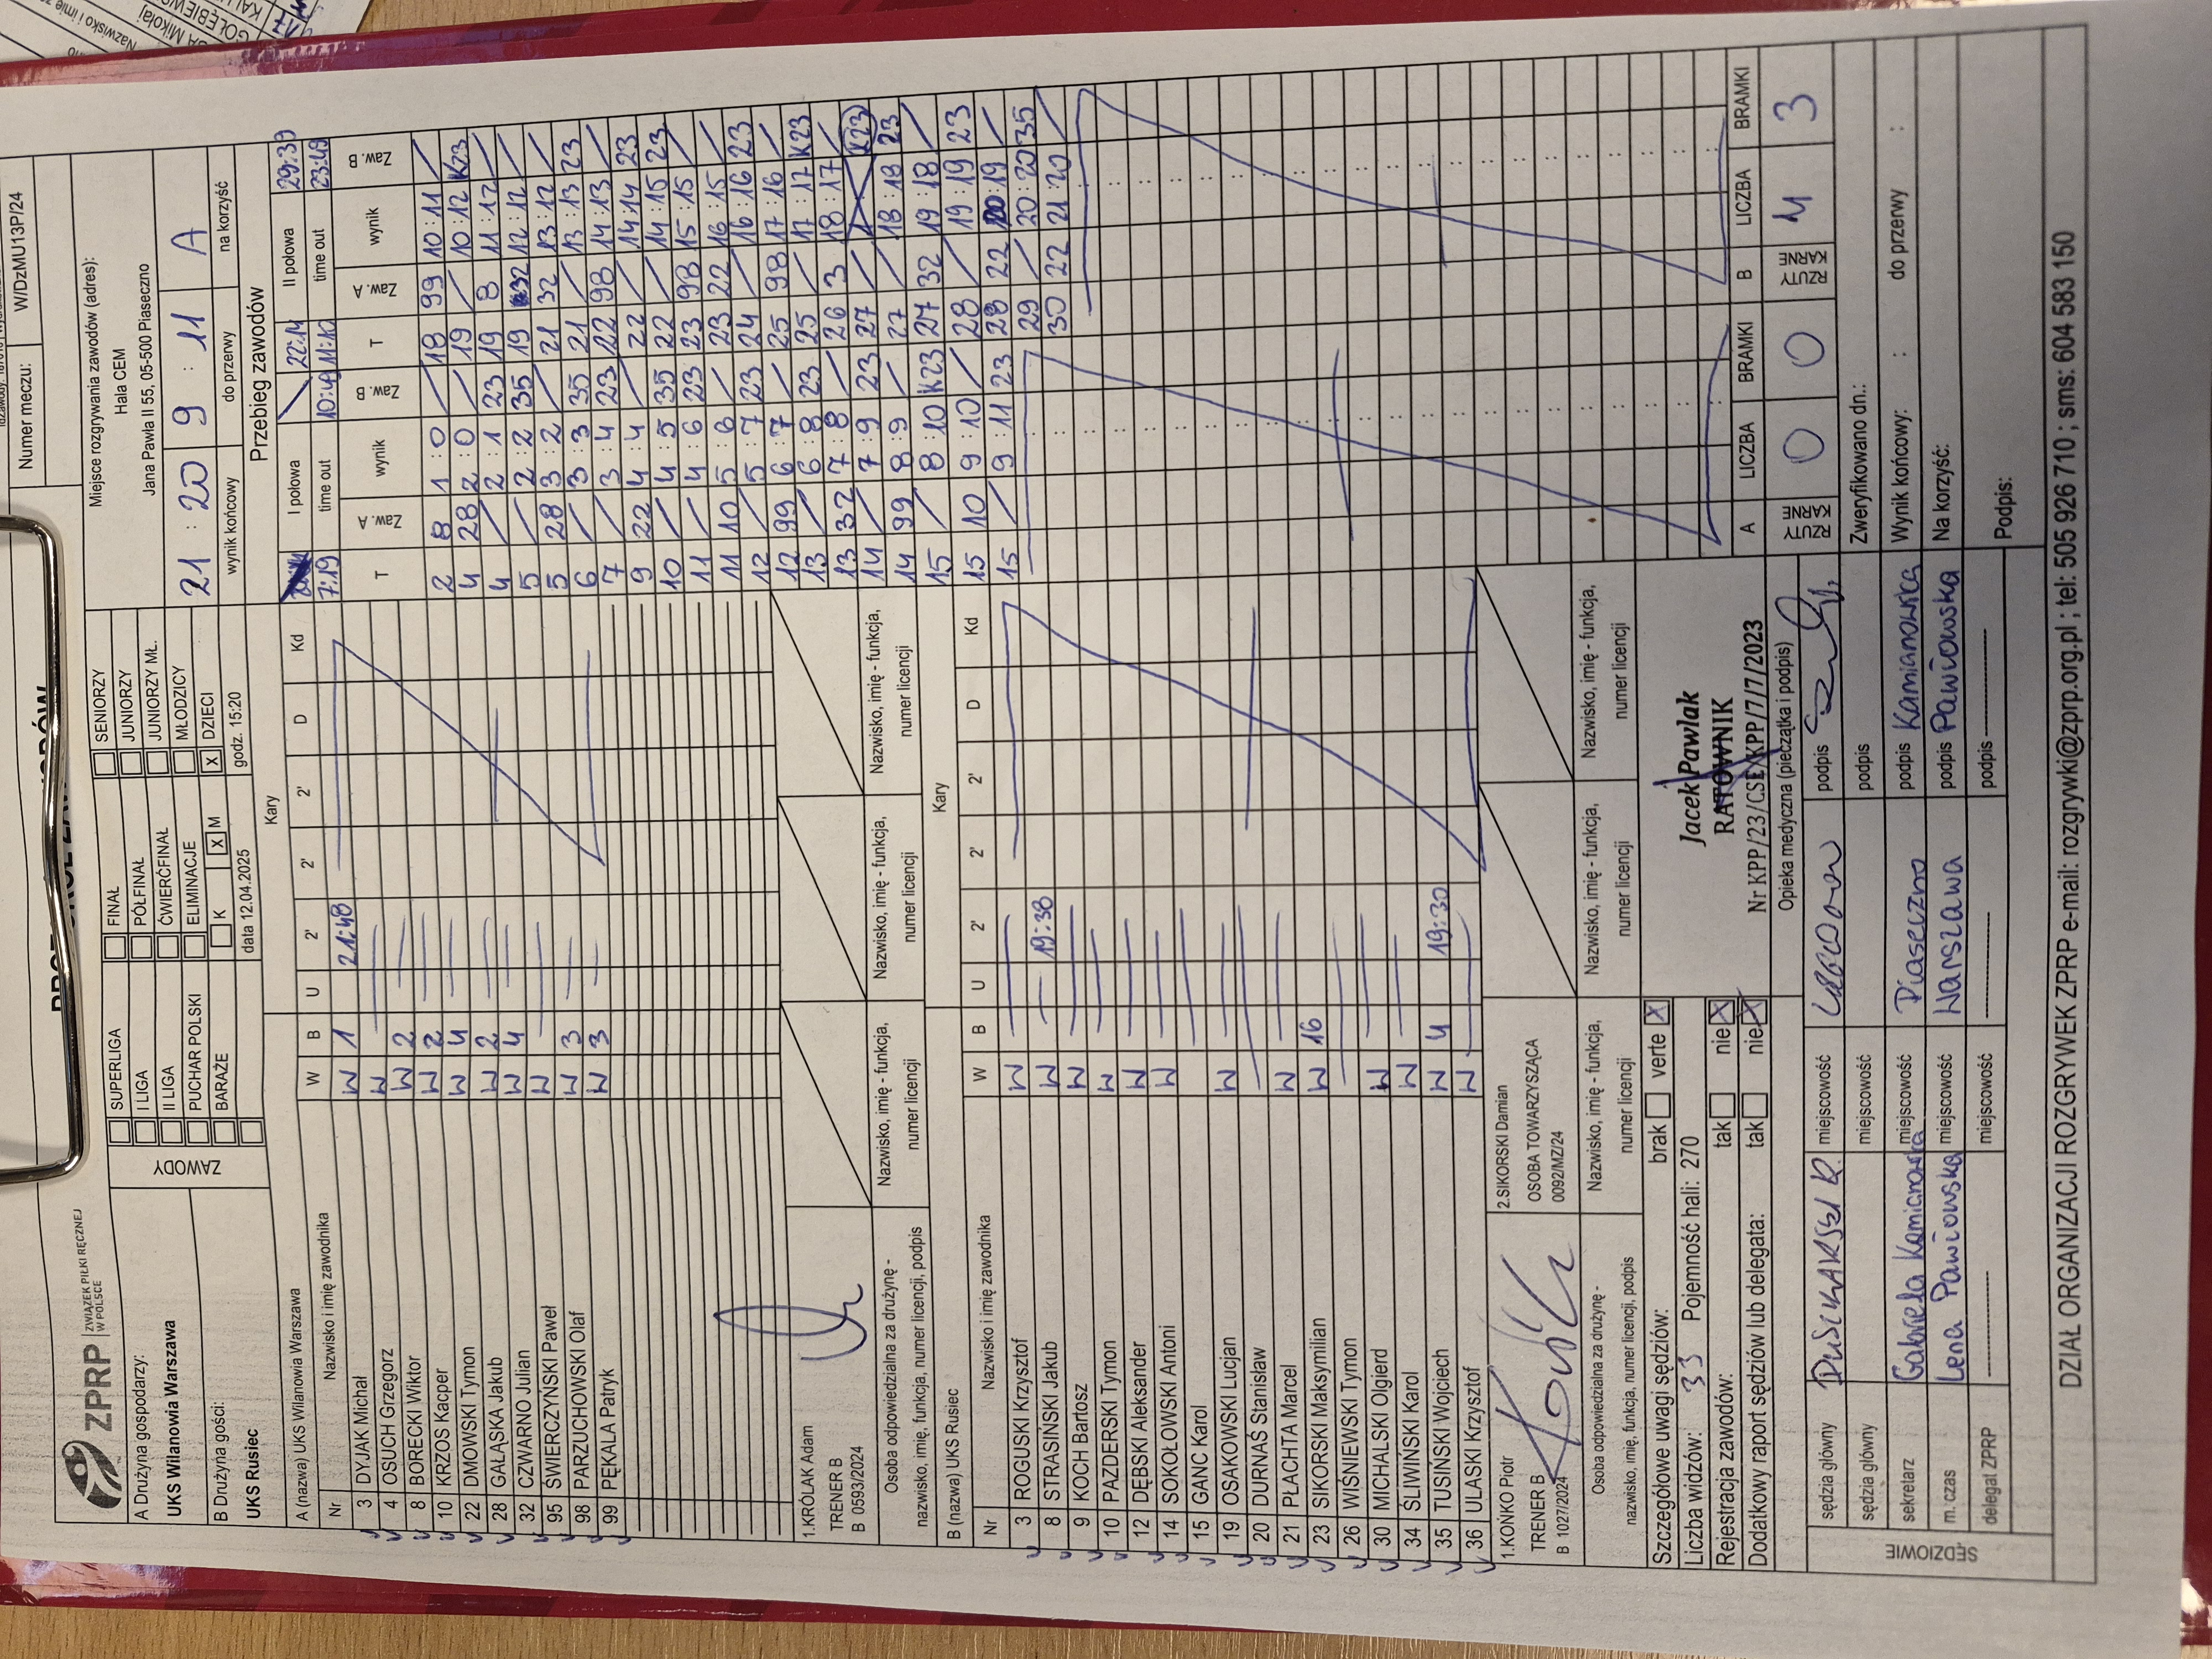 Numer meczu: W/DzMU13P/24
ZPRP ZWIĄZEK PIŁKI RĘCZNEJ W POLSCE
A Drużyna gospodarzy:
UKS Wilanowia Warszawa
B Drużyna gości:
UKS Rusiec
ZAWODY
SUPERLIGA
I LIGA
II LIGA
PUCHAR POLSKI
BARAŻE
FINAŁ
PÓŁFINAŁ
ĆWIERĆFINAŁ
ELIMINACJE
K X M
SENIORZY
JUNIORZY
JUNIORZY MŁ.
MŁODZICY
X DZIECI
data 12.04.2025 godz. 15:20
Miejsce rozgrywania zawodów (adres):
Hala CEM
Jana Pawła II 55, 05-500 Piaseczno
21 : 20 9 : 11 A
wynik końcowy do przerwy na korzyść
A (nazwa) UKS Wilanowia Warszawa Kary
Nr Nazwisko i imię zawodnika W B U 2' 2' 2' D Kd
3 DYJAK Michał W 1 21:48
4 OSUCH Grzegorz W
8 BORECKI Wiktor W 2
10 KRZOS Kacper W 2
22 DMOWSKI Tymon W 4
28 GAŁĄSKA Jakub W 2
32 CZWARNO Julian W 4
95 ŚWIERCZYŃSKI Paweł W
98 PARZUCHOWSKI Olaf W 3
99 PĘKALA Patryk W 3
1.KRÓLAK Adam
TRENER B
B 0593/2024
Osoba odpowiedzialna za drużynę -
nazwisko, imię, funkcja, numer licencji, podpis
Nazwisko, imię - funkcja, numer licencji
Nazwisko, imię - funkcja, numer licencji
Nazwisko, imię - funkcja, numer licencji
B (nazwa) UKS Rusiec Kary
Nr Nazwisko i imię zawodnika W B U 2' 2' 2' D Kd
3 ROGUSKI Krzysztof W
8 STRASIŃSKI Jakub W 19:38
9 KOCH Bartosz W
10 PAZDERSKI Tymon W
12 DĘBSKI Aleksander W
14 SOKOŁOWSKI Antoni W
15 GANC Karol
19 OSAKOWSKI Lucjan W
20 DURNAŚ Stanisław
21 PŁACHTA Marcel W
23 SIKORSKI Maksymilian W 16
26 WIŚNIEWSKI Tymon
30 MICHALSKI Olgierd W
34 ŚLIWIŃSKI Karol W
35 TUSIŃSKI Wojciech W 4 19:30
36 ULASKI Krzysztof W
1.KOŃKO Piotr
TRENER B
B 1027/2024
2.SIKORSKI Damian
OSOBA TOWARZYSZĄCA
0092/MZ/24
Osoba odpowiedzialna za drużynę -
nazwisko, imię, funkcja, numer licencji, podpis
Nazwisko, imię - funkcja, numer licencji
Nazwisko, imię - funkcja, numer licencji
Nazwisko, imię - funkcja, numer licencji
Przebieg zawodów
I połowa 22:14 II połowa 29:39
7:19 time out 10:49 11:10 time out 23:49
T Zaw. A wynik Zaw. B T Zaw. A wynik Zaw. B
2 8 1 : 0 / 18 99 10 : 11 /
4 28 2 : 0 / 19 / 10 : 12 K23
4 / 2 : 1 23 19 8 11 : 12 /
5 / 2 : 2 35 19 32 12 : 12 /
5 28 3 : 2 / 21 32 13 : 12 /
6 / 3 : 3 35 21 / 13 : 13 23
7 / 3 : 4 23 22 98 14 : 13 /
9 22 4 : 4 / 22 / 14 : 14 23
10 / 4 : 5 35 22 / 14 : 15 23
11 / 4 : 6 23 23 98 15 : 15 /
11 10 5 : 6 / 23 22 16 : 15 /
12 / 5 : 7 23 24 / 16 : 16 23
12 99 6 : 7 / 25 98 17 : 16 /
13 / 6 : 8 23 25 / 17 : 17 K23
13 32 7 : 8 / 26 3 18 : 17 /
14 / 7 : 9 23 27 / K23
14 99 8 : 9 / 27 / 18 : 18 23
15 / 8 : 10 K23 27 32 19 : 18 /
15 10 9 : 10 / 28 / 19 : 19 23
15 / 9 : 11 23 28 22 20 : 19 /
29 / 20 : 20 35
30 22 21 : 20 /
A LICZBA BRAMKI B LICZBA BRAMKI
RZUTY KARNE 0 0 RZUTY KARNE 4 3
Szczegółowe uwagi sędziów: brak verte X
Liczba widzów: 33 Pojemność hali: 270
Rejestracja zawodów: tak nie X
Dodatkowy raport sędziów lub delegata: tak nie X
Jacek Pawlak
RATOWNIK
Nr KPP/23/CSE/KPP/7/7/2023
Opieka medyczna (pieczątka i podpis)
Zweryfikowano dn.:
Wynik końcowy: : do przerwy :
Na korzyść:
Podpis:
SĘDZIOWIE
sędzia główny miejscowość podpis
sędzia główny miejscowość podpis
sekretarz Gabriela Kamianowska miejscowość Piaseczno podpis Kamianowska
m. czas Lena Pawłowska miejscowość Warszawa podpis Pawłowska
delegat ZPRP miejscowość podpis
DZIAŁ ORGANIZACJI ROZGRYWEK ZPRP e-mail: rozgrywki@zprp.org.pl ; tel: 505 926 710 ; sms: 604 583 150